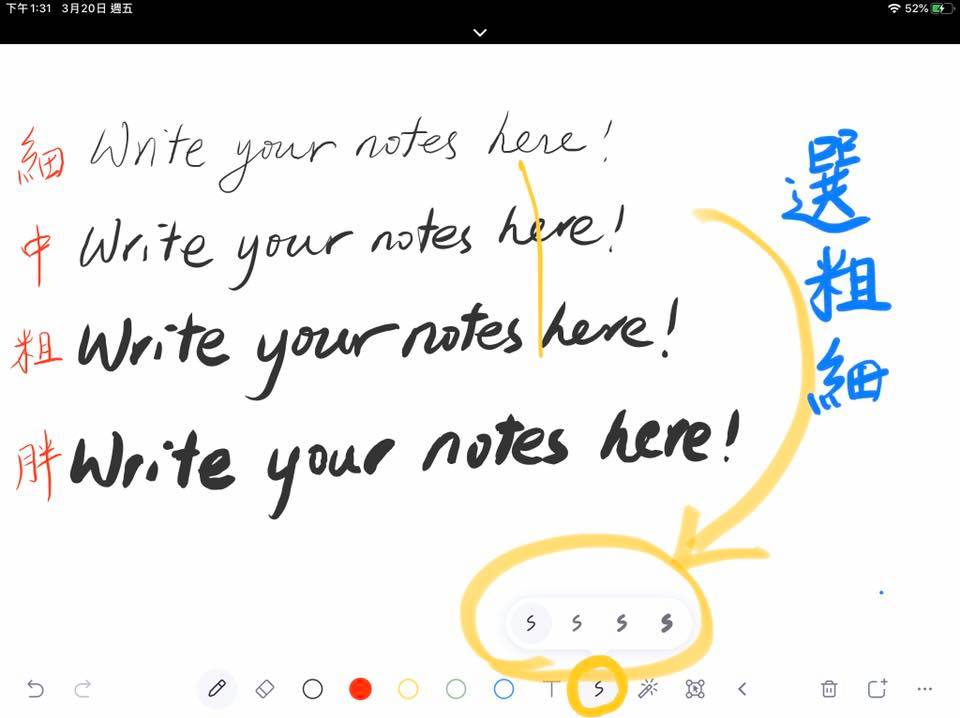 下午1:31 3月20日 週五
52%
細 Write your notes here!
中 Write your notes here!
粗 Write your notes here!
胖 Write your notes here!
選粗細
S S S S
T S